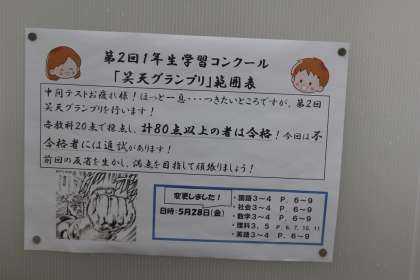 第2回1年生学習コンクール
「笑天グランプリ」範囲表
中間テストお疲れ様！ほっと一息・・・つきたいところですが、第2回
笑天グランプリを行います！
各教科20点で採点し、計80点以上の者は合格！今回は不
合格者には追試があります！
前回の反省を生かし、満点を目指して頑張りましょう！
変更しました！
日時：5月28日（金）
・国語3～4 P．6～9
・社会3～4 P．6～9
・数学3～4 P．6～9
・理科3．5 P．6，7，10，11
・英語3～4 P．6～9